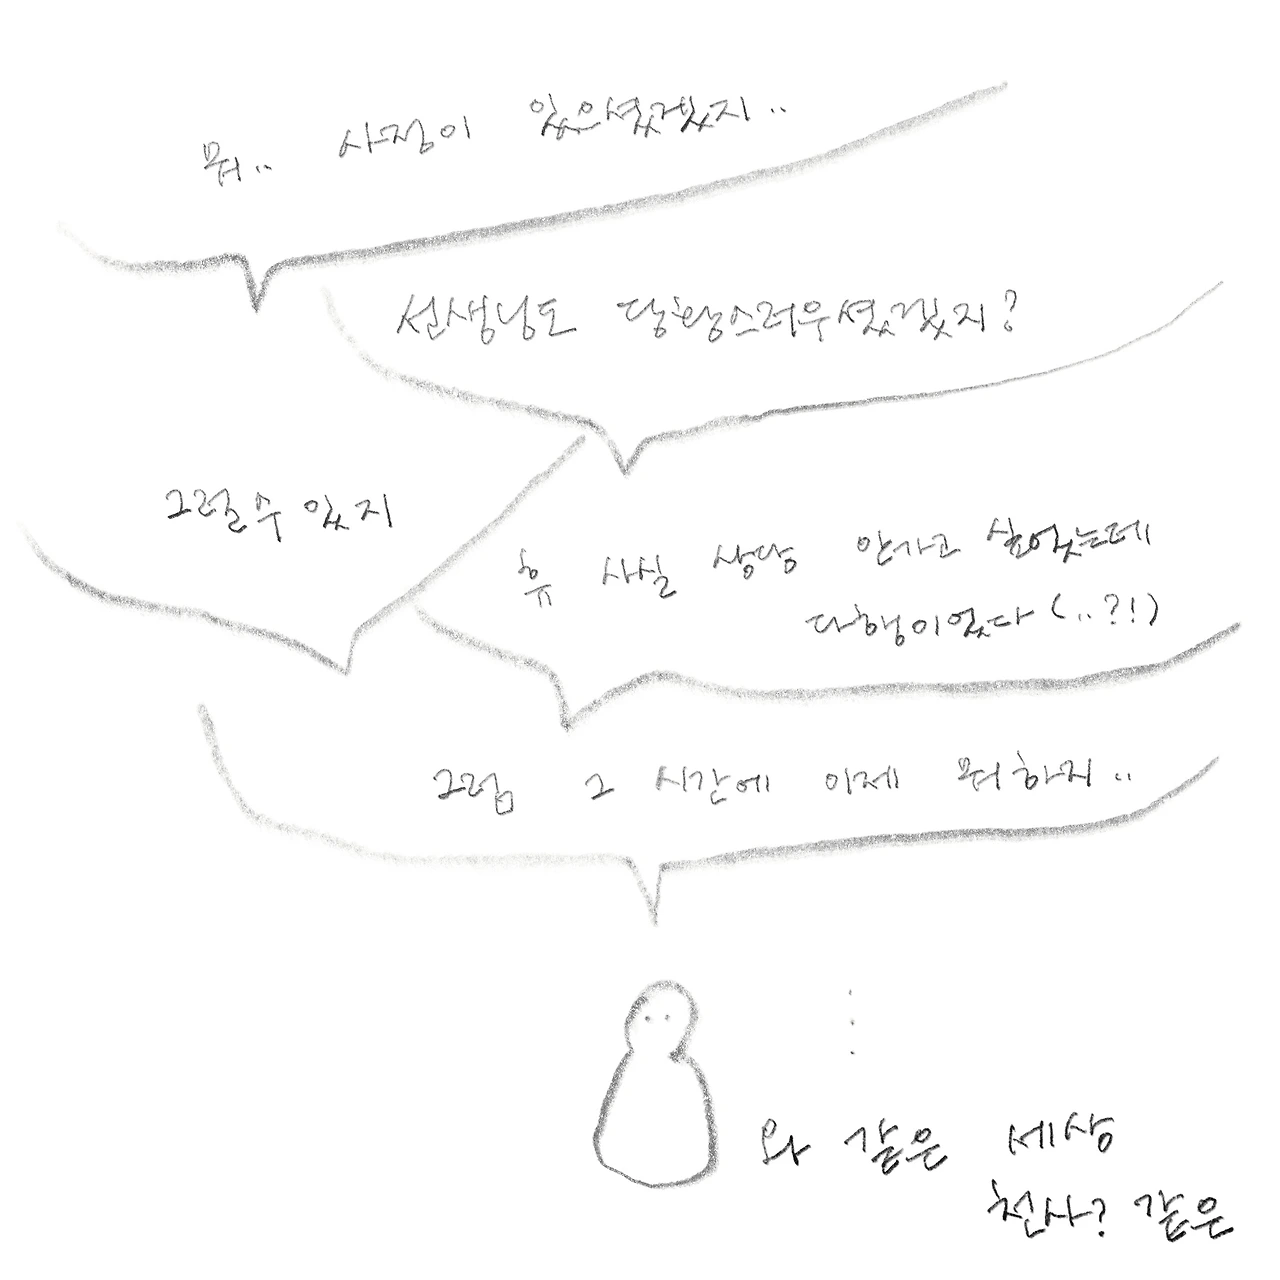 뭐.. 사정이 있으셨겠지..
선생님도 당황스러우셨겠지?
그럴수 있지
휴 사실 상담 안가고 싶었는데
다행이었다 (..?!)
그럼 그 시간에 이제 뭐하지..
와 같은 세상
천사? 같은